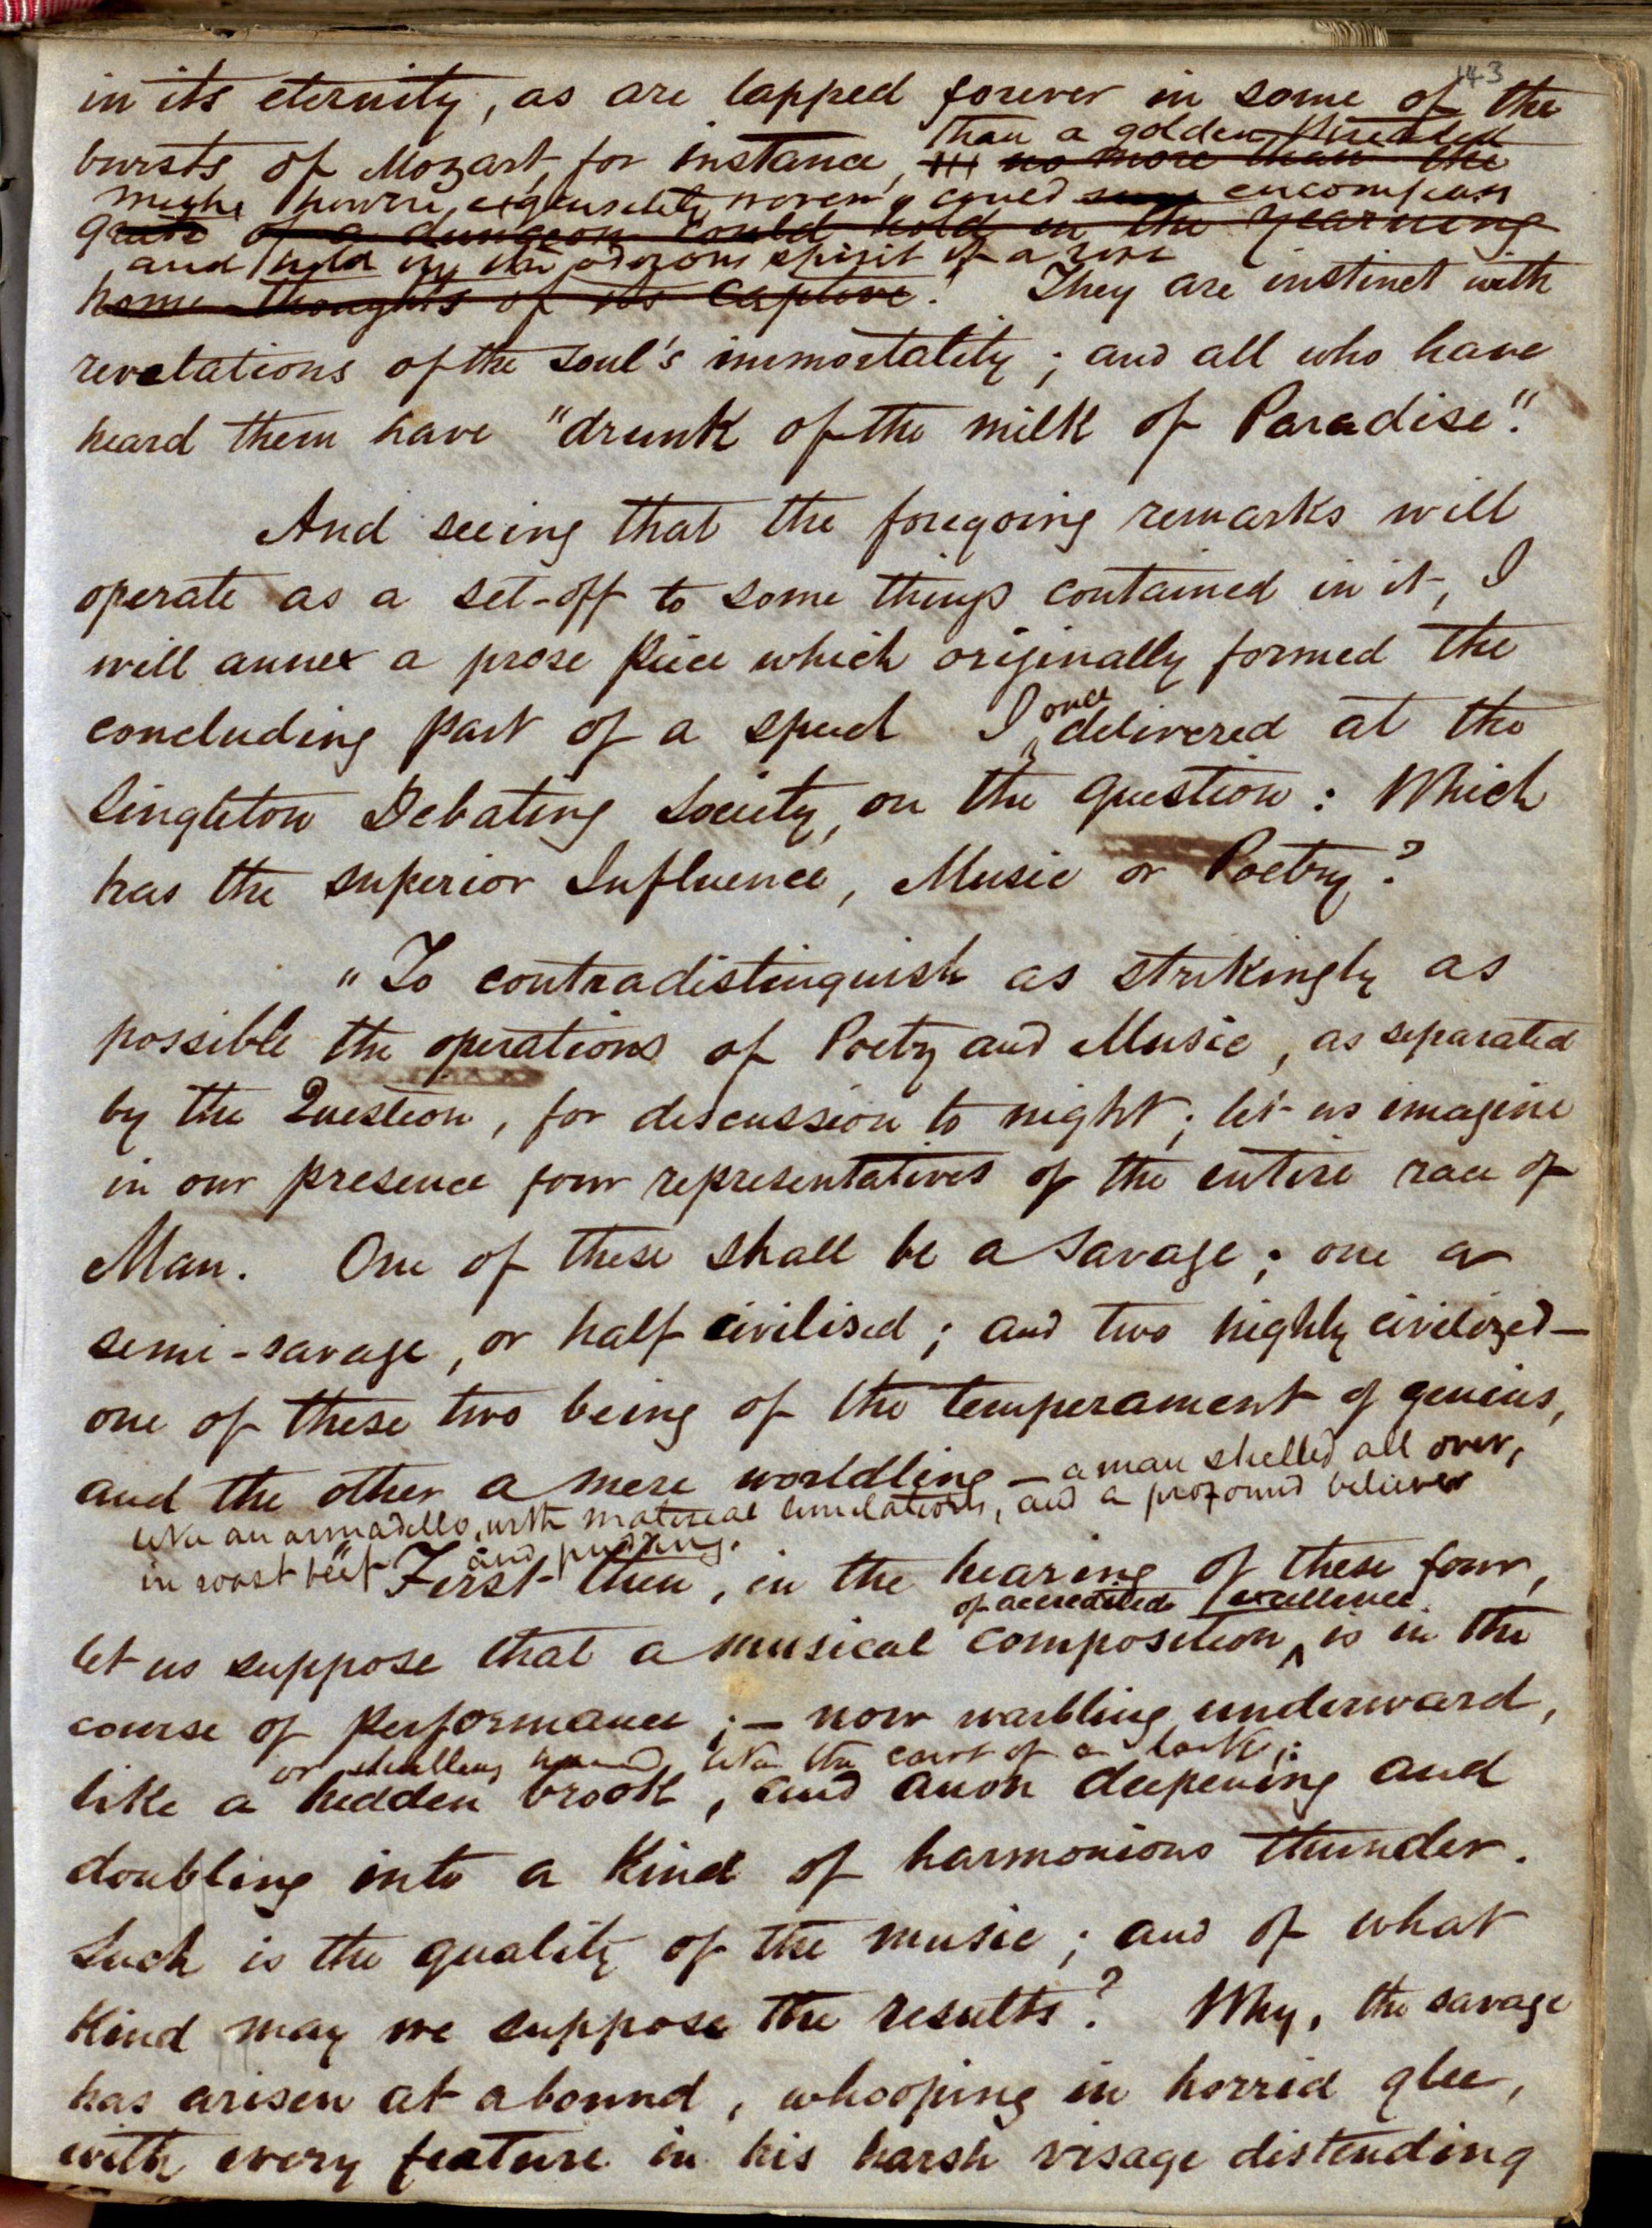 143
in its eternity, as are lapped forever in some of the
than a golden threaded
bursts of Mozart, for instance, no more than the
mesh, however exquisitely woven, could encompass
grate of a dungeon could hold in the yearning
and hold in the odorous spirit of a rose
home-thoughts of its captive! They are instinct with
revelations of the soul's immortality; and all who have
heard them have "drunk of the milk of Paradise."
And seeing that the foregoing remarks will
operate as a set-off to some things contained in it, I
will annex a prose piece which originally formed the
once
concluding part of a speech I delivered at the
Singleton Debating Society, on the question: Which
has the superior Influence, Music or Poetry?
"To contradistinguish as strikingly as
possible the operations of Poetry and Music, as separated
by the Question, for discussion to night; let us imagine
in our presence four representatives of the entire race of
Man. One of these shall be a savage; one a
semi-savage, or half civilised; and two highly civilized—
one of these two being of the temperament of genius,
and the other a mere worldling — a man shelled all over,
like an armadillo, with material emulations, and a profound believer
in roast beef and pudding.
"First then, in the hearing of these four,
of accredited excellence
let us suppose that a musical composition ^ is in the
course of performance; — now warbling underward,
or shrilling upward like the of a lark;
like a hidden brook, and anon deepening and
doubling into a kind of harmonious thunder.
Such is the quality of the music; and of what
kind may we suppose the results? Why, the savage
has arisen at a bound, whooping in horrid glee,
with every feature in his harsh visage distending